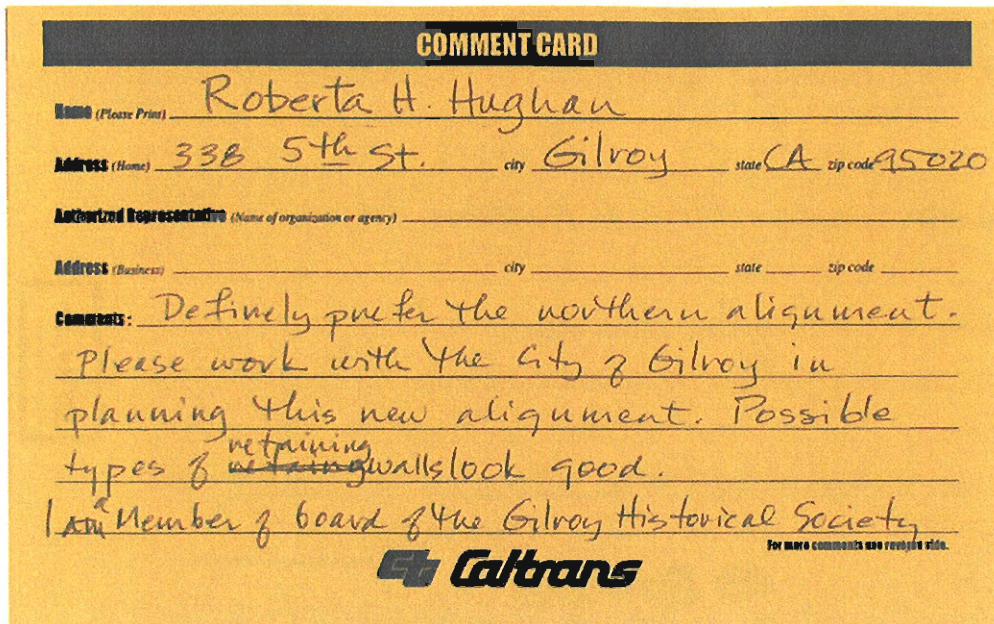 COMMENT CARD
Name (Please Print) Roberta H. Hughan
Address (Home) 338 5th St. city Gilroy state CA zip code 95020
Authorized Representative (Name of organization or agency)
Address (Business) city state zip code
Comments: Definely prefer the northern alignment.
Please work with the City of Gilroy in
planning this new alignment. Possible
types of retaining walls look good.
I am a Member of board of the Gilroy Historical Society
For more comments use reverse side.
Ct Caltrans